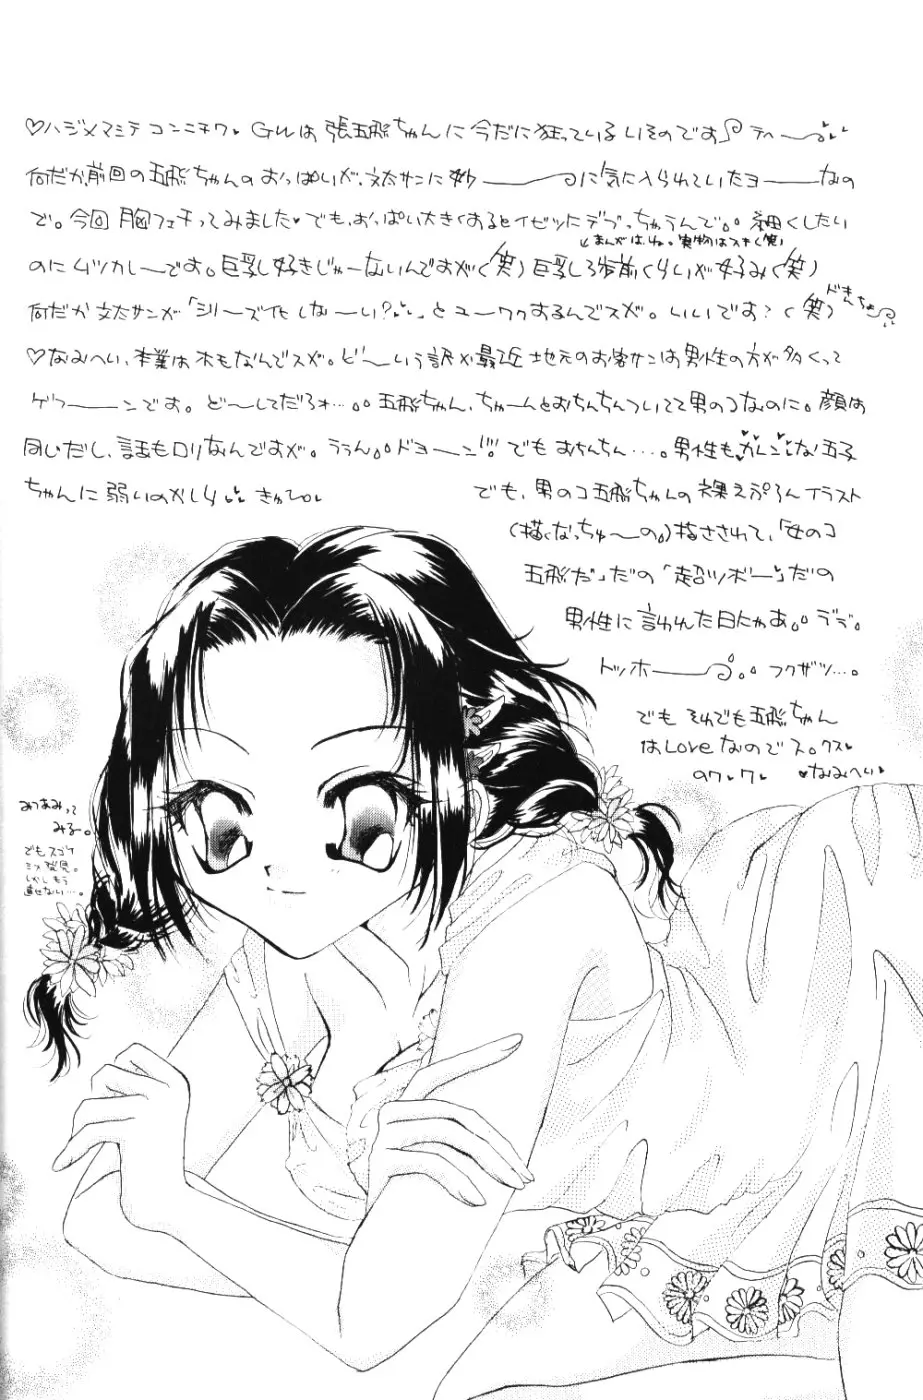 ♡ハジメマシテ コンニチワ♥ GWは張五飛ちゃんに今だに狂っているいそのです テヘー
何だか前回の五飛ちゃんのおっぱいが、文太サンに妙ーーーに気に入られていたヨーなの
で。今回胸フェチってみました♥でも、おっぱい大きくするとイゼッたにデブっちゃうんで。。細くしたい
↓まんがはね。実物はスキ(笑)
のにムツカしーです。巨乳し好きじゃーないんですが(笑)巨乳し3歩前くらいが好み(笑)
何だか文太サンが「シリーズ化しなーい?♥」とユーワクするんでスが。いいです?(笑)
♡なみへい、本業はホモなんでスが。どーいう訳か最近地元のお客サンは男性の方が多くって
ゲラーーンです。どーしてだろォ…。。五飛ちゃん、ちゃーんとおちんちんついてて男のコなのに。顔は
同じだし、話もロリなんですが。ううん。。ドヨーン!!! でもおちんちん…。男性もカレンな五子
ちゃんに弱いのかしら♥ きゅぴ。
でも、男のコ五飛ちゃんの裸えぷろんイラスト
(描くなっちゅーの。)描さされて、「女のコ
五飛だ」だの「超ツボー」だの
男性に言われた日にゃあ。。デデ。
トッホーー。。フクザツ…。
でもそれでも五飛ちゃん
はLoveなのでス。クス♥
のワ♥ワ♥ ♥なみへい♥
みつあみって
みるー。
でもスゴイ
ミス発見。
しかしもう
直せない…。